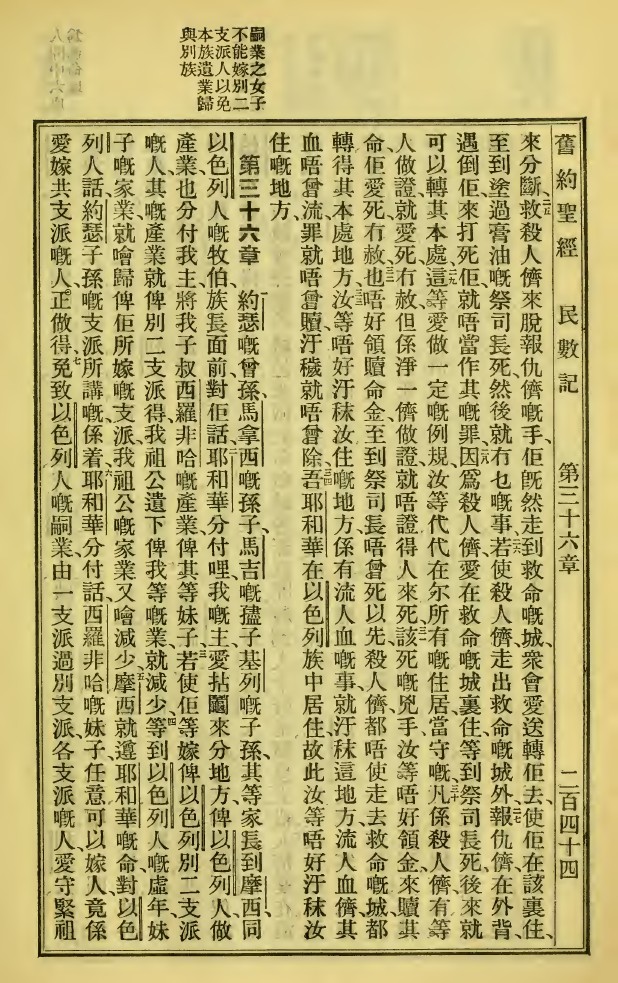 嗣業之女子
不能嫁別二
支派人以免
本族遺業歸
與別族
舊約聖經 民數記 第三十六章 二百四十四
來分斷、救殺人儕來脫報仇儕嘅手、佢既然走到救命嘅城、衆會愛送轉佢去、使佢在該裏住、
至到塗過膏油嘅祭司長死、然後就冇乜嘅事、若使殺人儕走出救命嘅城外、報仇儕在外背
遇倒佢、來打死佢、就唔當作其嘅罪、因爲殺人儕愛在救命嘅城裏住、等到祭司長死、後來就
可以轉其本處、這等愛做一定嘅例規、汝等代代在尔所有嘅住居當守嘅、凡係殺人儕、有等
人做證、就愛死冇赦、但係淨一儕做證、就唔證得人來死、該死嘅兇手、汝等唔好領金來贖其
命、佢愛死冇赦也、唔好領贖命金、至到祭司長唔曾死以先、殺人儕都唔使走去救命嘅城、都
轉得其本處地方、汝等唔好汙秣汝住嘅地方、係有流人血嘅事、就汙秣這地方、流人血儕、其
血唔曾流、罪就唔曾贖、汙穢就唔曾除、吾耶和華在以色列族中居住、故此汝等唔好汙秣汝
住嘅地方、
第三十六章 約瑟嘅曾孫、馬拿西嘅孫子、馬吉嘅孻子基列嘅子孫、其等家長、到摩西同
以色列人嘅牧伯族長面前、對佢話、耶和華分付哩我嘅主、愛拈鬮來分地方、俾以色列人做
產業、也分付我主、將我子叔西羅非哈嘅產業、俾其等妹子、若使佢等嫁俾以色列別二支派
嘅人、其嘅產業就俾別二支派得、我祖公遺下俾我等嘅業、就減少、等到以色列人嘅虛年、妹
子嘅家業就噲歸俾佢所嫁嘅支派、我祖公嘅家業又噲減少、摩西就遵耶和華嘅命、對以色
列人話、約瑟子孫嘅支派所講嘅係着、耶和華分付話、西羅非哈嘅妹子、任意可以嫁人、竟係
愛嫁共支派嘅人、正做得、免致以色列人嘅嗣業、由一支派過別支派、各支派嘅人、愛守緊祖